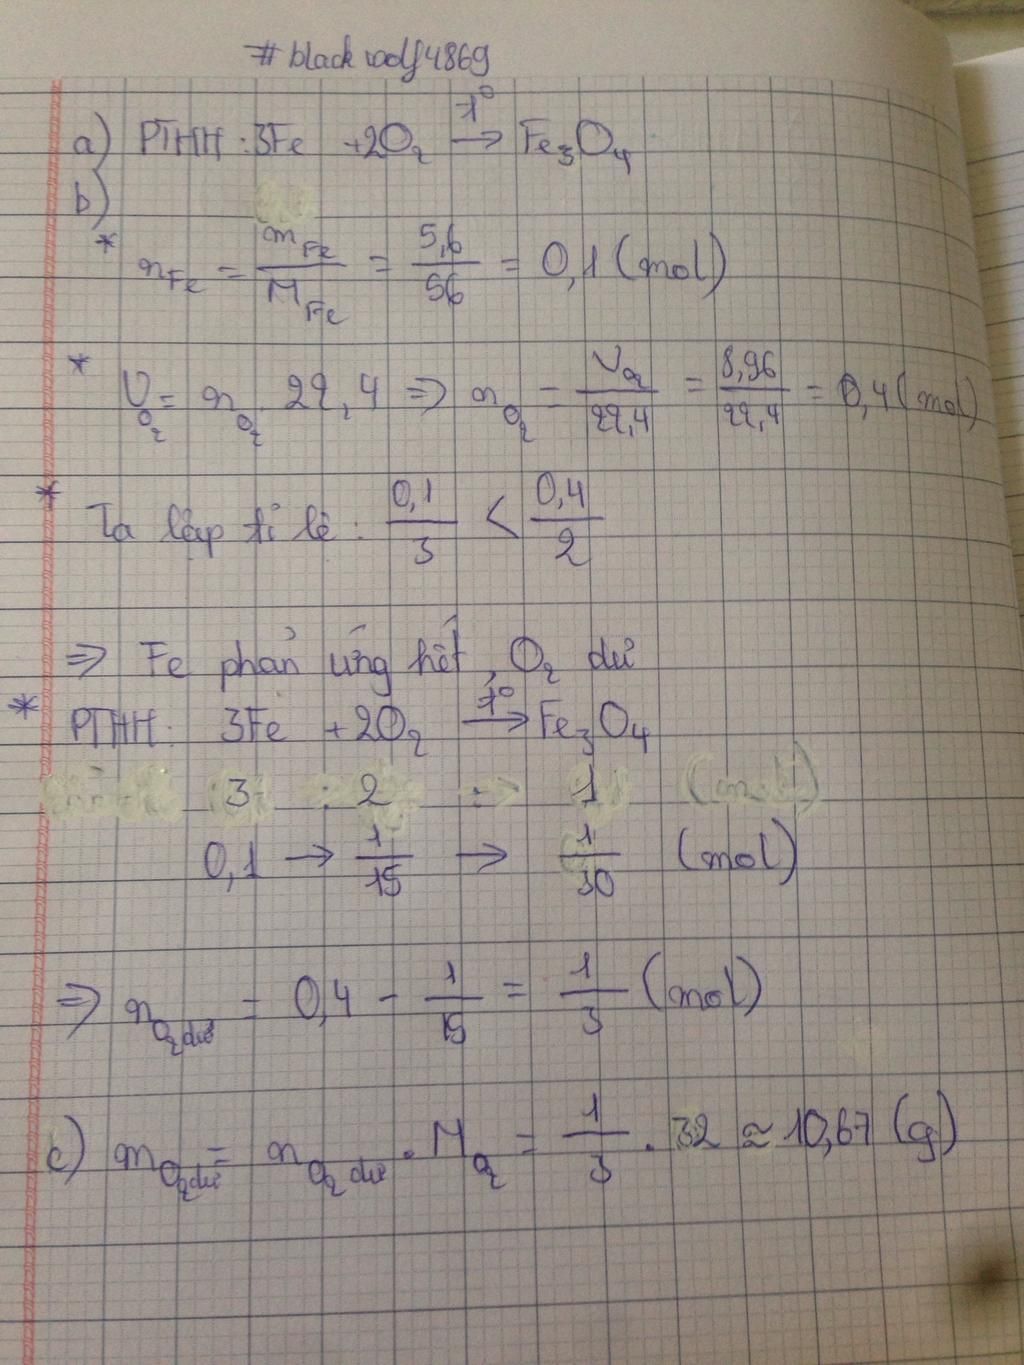 #blackwolf4869
a) PTHH: 3Fe + 2O₂ →(t°) Fe₃O₄
b)
* n_Fe = m_Fe / M_Fe = 5,6 / 56 = 0,1 (mol)
* V_O₂ = n_O₂ . 22,4 ⇒ n_O₂ = V_O₂ / 22,4 = 8,96 / 22,4 = 0,4 (mol)
* Ta lập tỉ lệ: 0,1/3 < 0,4/2
⇒ Fe phản ứng hết, O₂ dư
* PTHH: 3Fe + 2O₂ →(t°) Fe₃O₄
3 : 2 : 1
0,1 → 1/15 → 1/30 (mol)
⇒ n_O₂ dư = 0,4 - 1/15 = 1/3 (mol)
c) m_O₂ dư = n_O₂ dư . M_O₂ = 1/3 . 32 ≈ 10,67 (g)